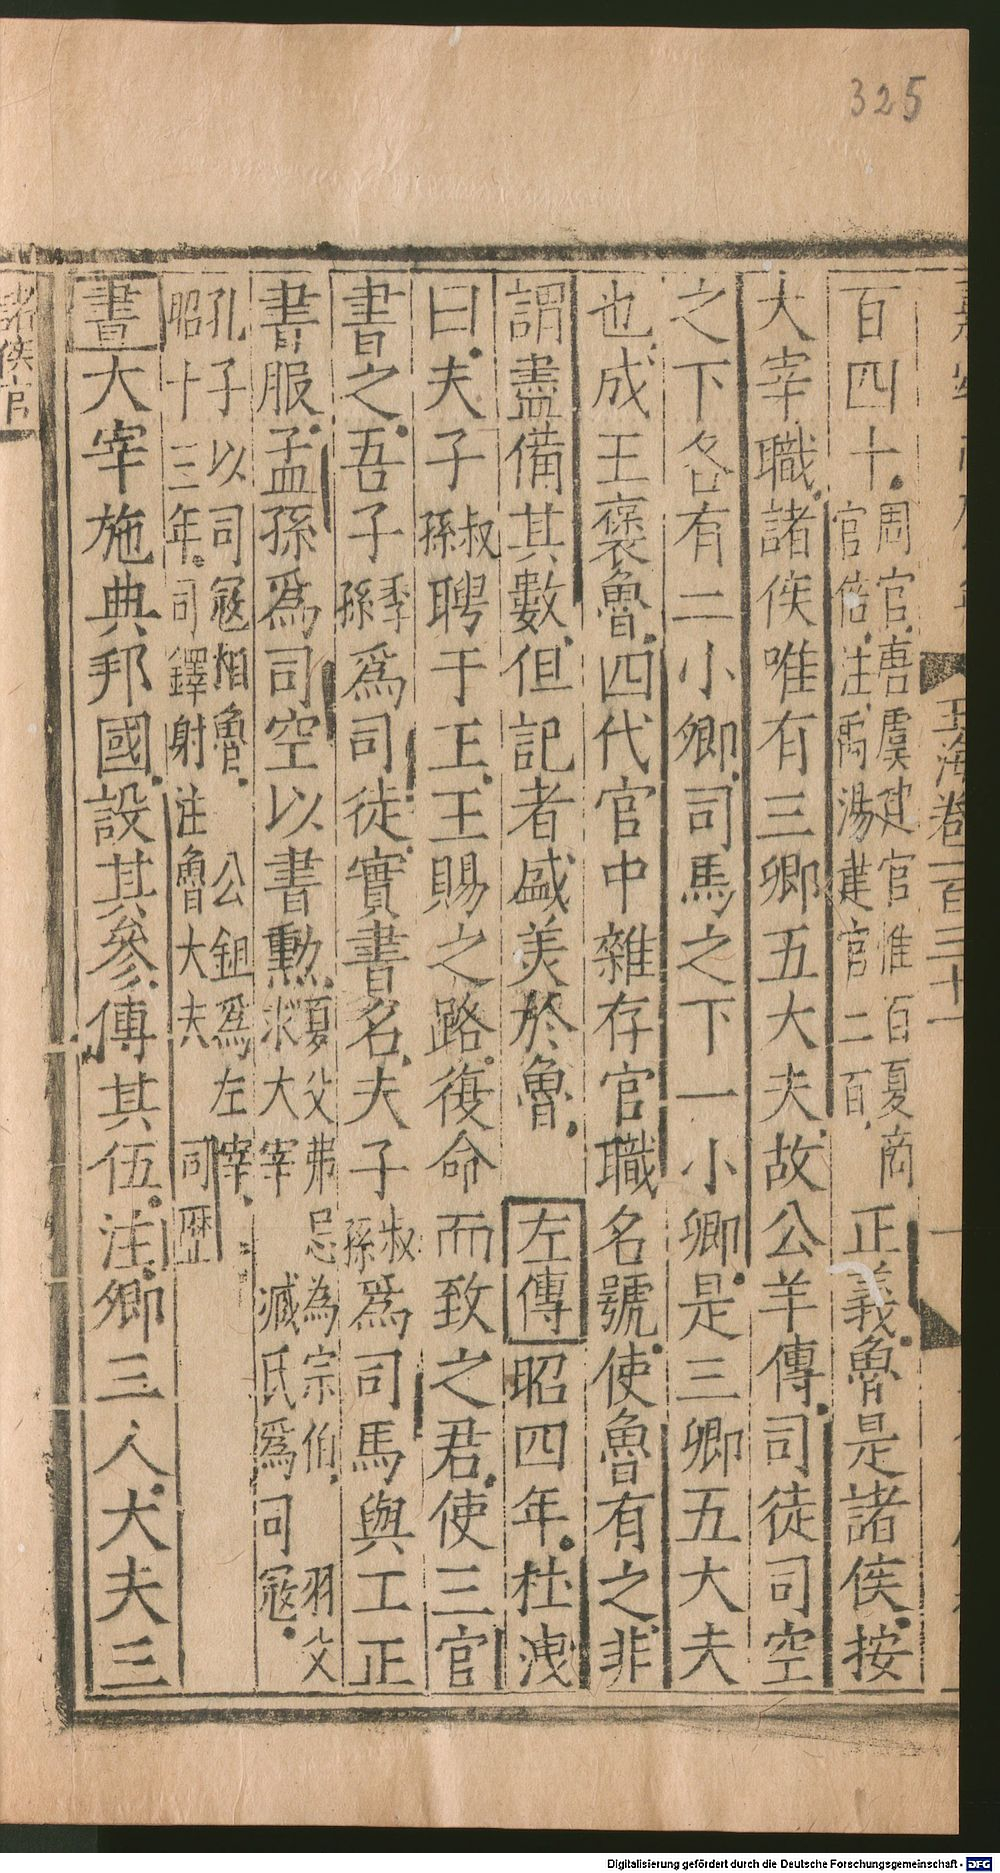 325
玉海卷一百三十一
百四十周官唐虞建官惟百夏商官倍注禹湯建官二百正義魯是諸侯按
大宰職諸侯唯有三卿五大夫故公羊傳司徒司空
之下各有二小卿司馬之下一小卿是三卿五大夫
也成王褒魯四代官中雜存官職名號使魯有之非
謂盡備其數但記者盛美於魯左傳昭四年杜洩
曰夫子叔孫聘于王王賜之路復命而致之君使三官
書之吾子季孫為司徒實書名夫子叔孫爲司馬與工正
書服孟孫爲司空以書勲夏父弗忌為宗伯羽父求大宰臧氏爲司寇
孔子以司寇相魯公鉏爲左宰昭十三年司鐸射注魯大夫司歷
書大宰施典邦國設其參傅其伍注卿三人大夫三
諸侯官
Digitalisierung gefördert durch die Deutsche Forschungsgemeinschaft - DFG